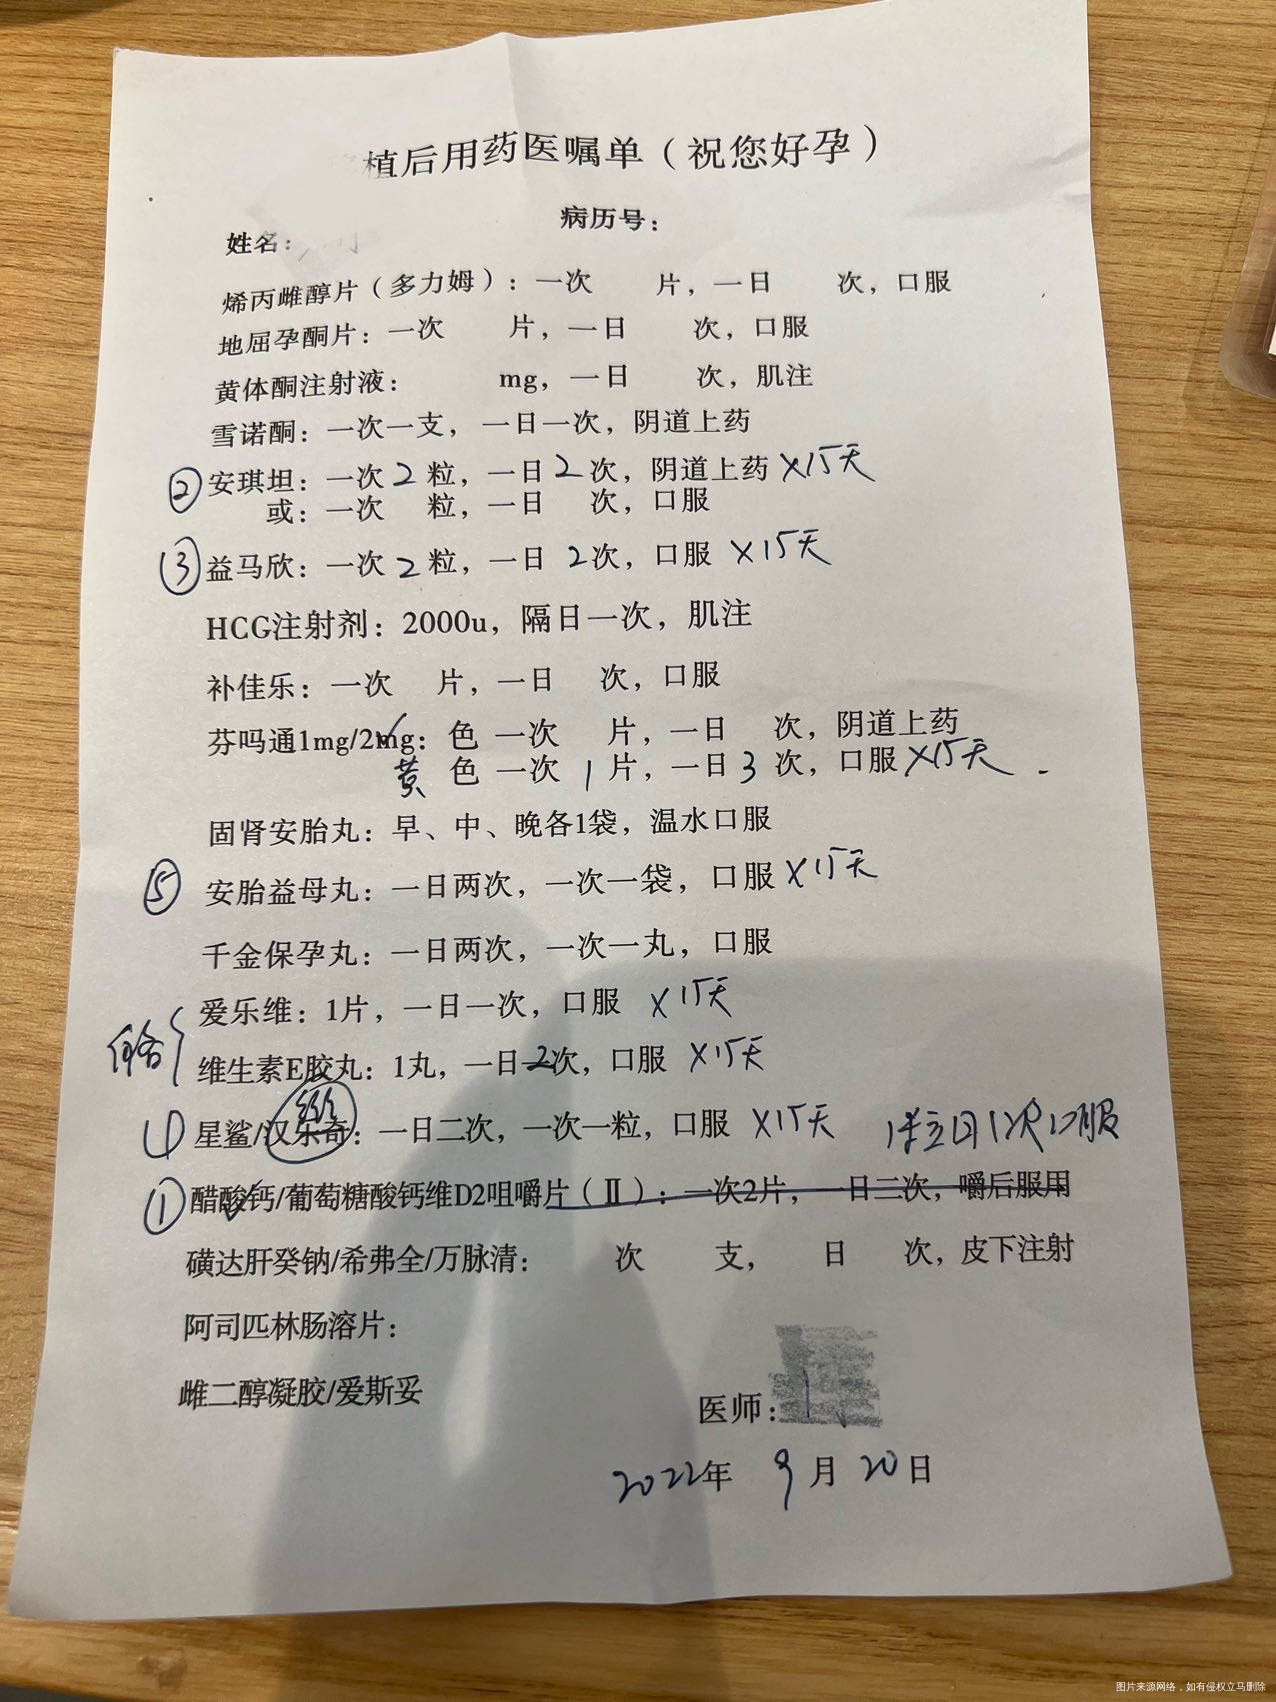 植后用药医嘱单（祝您好孕）
病历号：
姓名：
烯丙雌醇片（多力姆）：一次 片，一日 次，口服
地屈孕酮片：一次 片，一日 次，口服
黄体酮注射液： mg，一日 次，肌注
雪诺酮：一次一支，一日一次，阴道上药
② 安琪坦：一次 2 粒，一日 2 次，阴道上药 ×15天
或：一次 粒，一日 次，口服
③ 益马欣：一次 2 粒，一日 2 次，口服 ×15天
HCG注射剂：2000u，隔日一次，肌注
补佳乐：一次 片，一日 次，口服
芬吗通1mg/2mg： 色 一次 片，一日 次，阴道上药
黄 色 一次 1 片，一日 3 次，口服 ×15天
固肾安胎丸：早、中、晚各1袋，温水口服
⑤ 安胎益母丸：一日两次，一次一袋，口服 ×15天
千金保孕丸：一日两次，一次一丸，口服
爱乐维：1片，一日一次，口服 ×15天
维生素E胶丸：1丸，一日2次，口服 ×15天
④ 星鲨/汉乐奇：一日二次，一次一粒，口服 ×15天
① 醋酸钙/葡萄糖酸钙维D2咀嚼片（Ⅱ）：一次2片，一日二次，嚼后服用
1次口服
磺达肝癸钠/希弗全/万脉清： 次 支， 日 次，皮下注射
阿司匹林肠溶片：
雌二醇凝胶/爱斯妥
医师：
2022年 9 月 20 日
图片来源网络，如有侵权立马删除